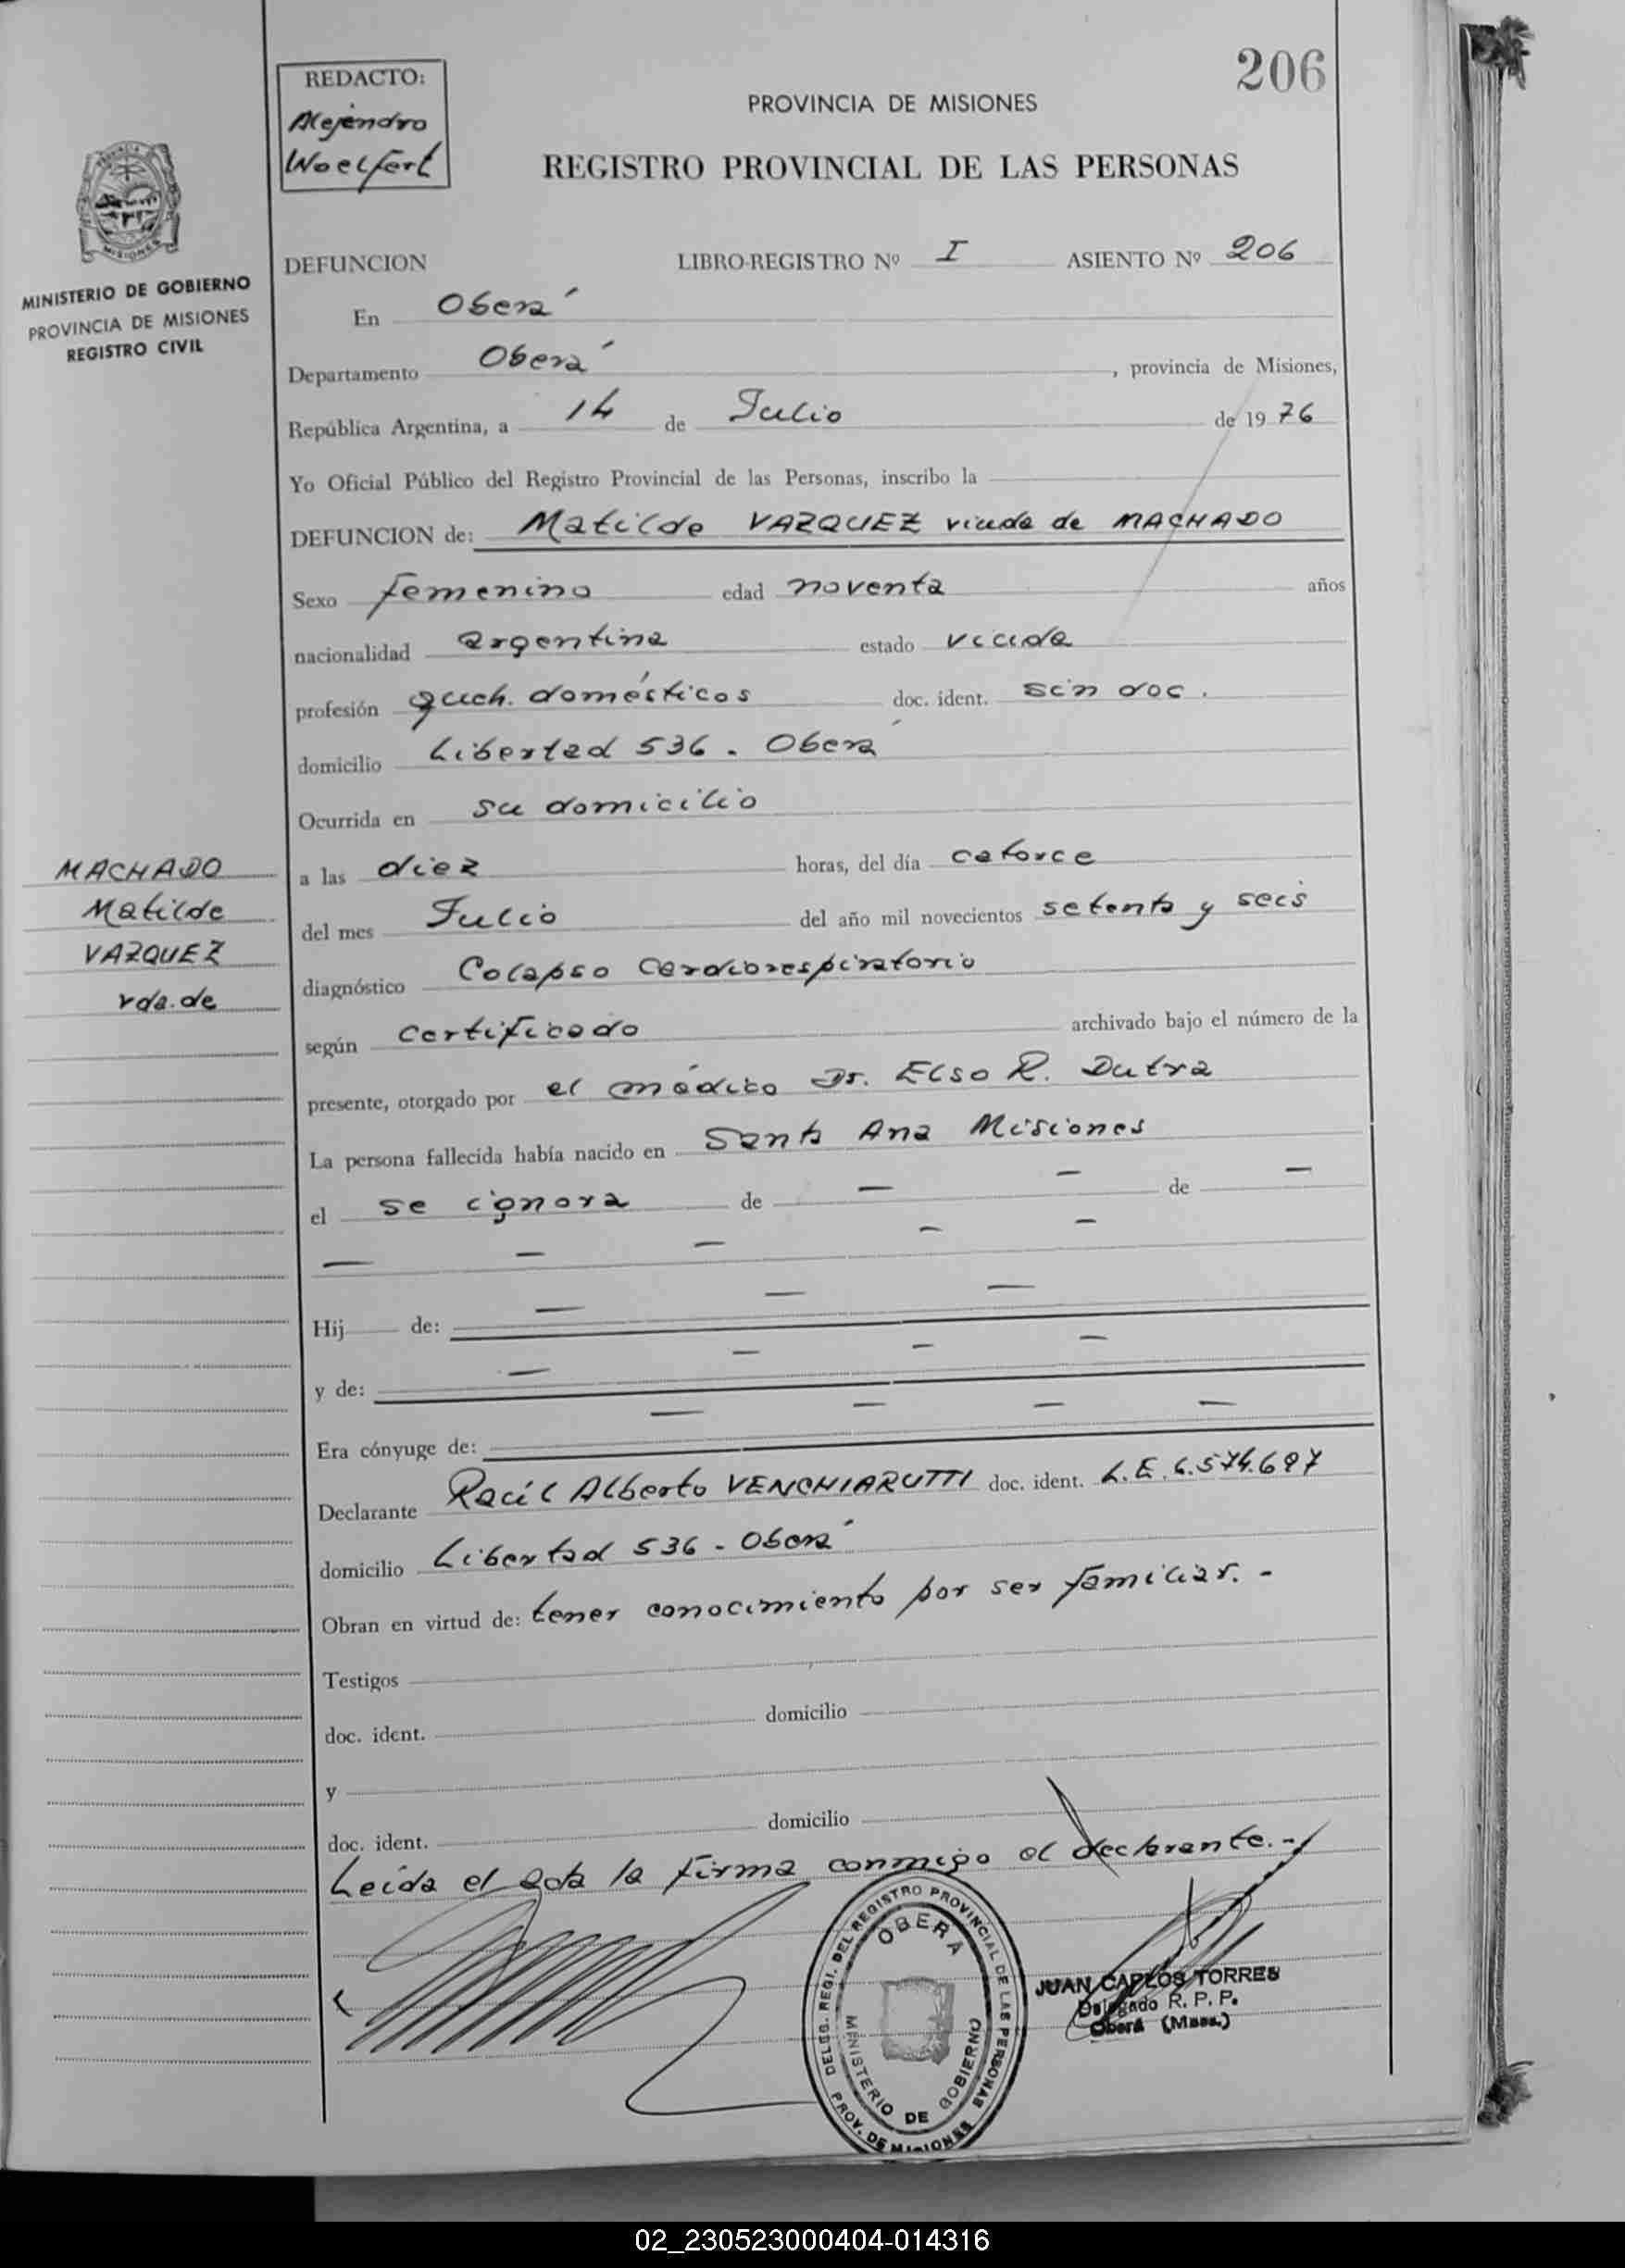 206
REDACTO:
Alejandro
Woelfert
PROVINCIA DE MISIONES
REGISTRO PROVINCIAL DE LAS PERSONAS
MISIONES
MINISTERIO DE GOBIERNO
PROVINCIA DE MISIONES
REGISTRO CIVIL
DEFUNCION LIBRO-REGISTRO Nº I ASIENTO Nº 206
En Oberá
Departamento Oberá, provincia de Misiones,
República Argentina, a 14 de Julio de 1976
Yo Oficial Público del Registro Provincial de las Personas, inscribo la
DEFUNCION de: Matilde VAZQUEZ viuda de MACHADO
Sexo femenino edad noventa años
nacionalidad argentina estado viuda
profesión queh. domésticos doc. ident. sin doc.
domicilio Libertad 536. Oberá
Ocurrida en su domicilio
a las diez horas, del día catorce
del mes Julio del año mil novecientos setenta y seis
diagnóstico Colapso Cardiorespiratorio
según certificado archivado bajo el número de la
presente, otorgado por el médico Dr. Elso R. Dutra
La persona fallecida había nacido en Santa Ana Misiones
el se ignora de — — de —
— — — — —
Hij de: — — —
y de: — — — —
Era cónyuge de: — — — —
Declarante Raúl Alberto VENCHIARUTTI doc. ident. L.E.
domicilio Libertad 536 - Oberá
Obran en virtud de: tener conocimiento por ser familiar. -
Testigos
doc. ident. domicilio
y
doc. ident. domicilio
Leída el acta la firma conmigo el declarante.-
MACHADO
Matilde
VAZQUEZ
vda. de
DELEG. REGI. DEL REGISTRO PROVINCIAL DE LAS PERSONAS
PROV. DE MISIONES
OBERA
MINISTERIO DE GOBIERNO
JUAN CARLOS TORRES
Delegado R. P. P.
Oberá (Mnes.)
02_230523000404-014316